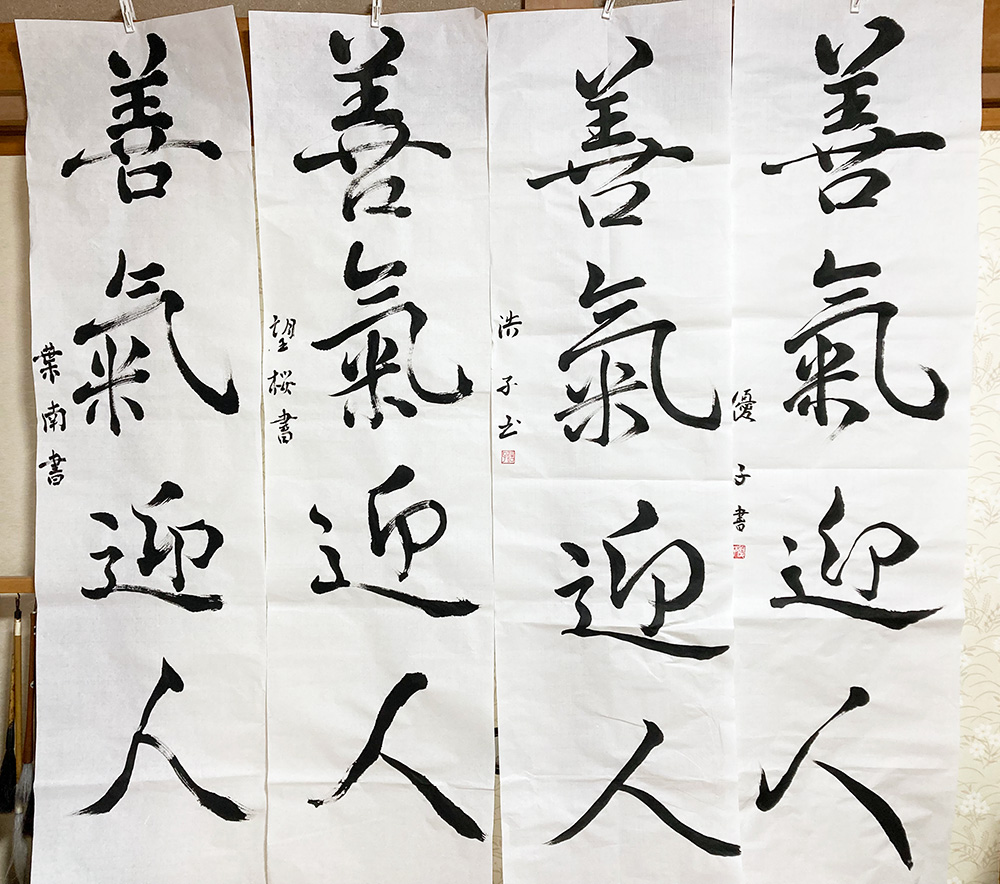 善氣迎人
優子書
善氣迎人
浩子書
善氣迎人
望桜書
善氣迎人
葉南書